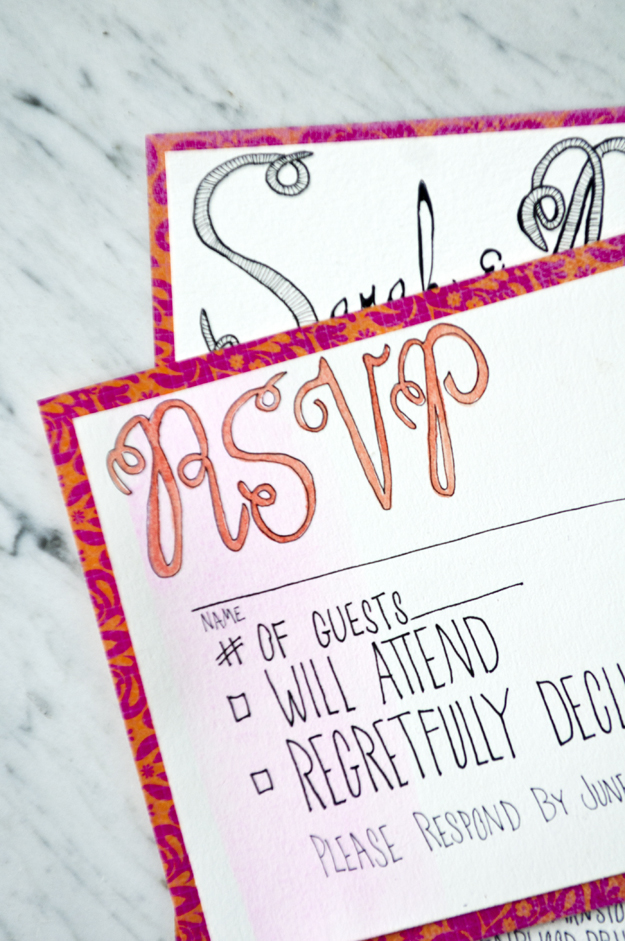 Sarah &
RSVP
NAME
# OF GUESTS
WILL ATTEND
REGRETFULLY DECL
PLEASE RESPOND BY JUNE